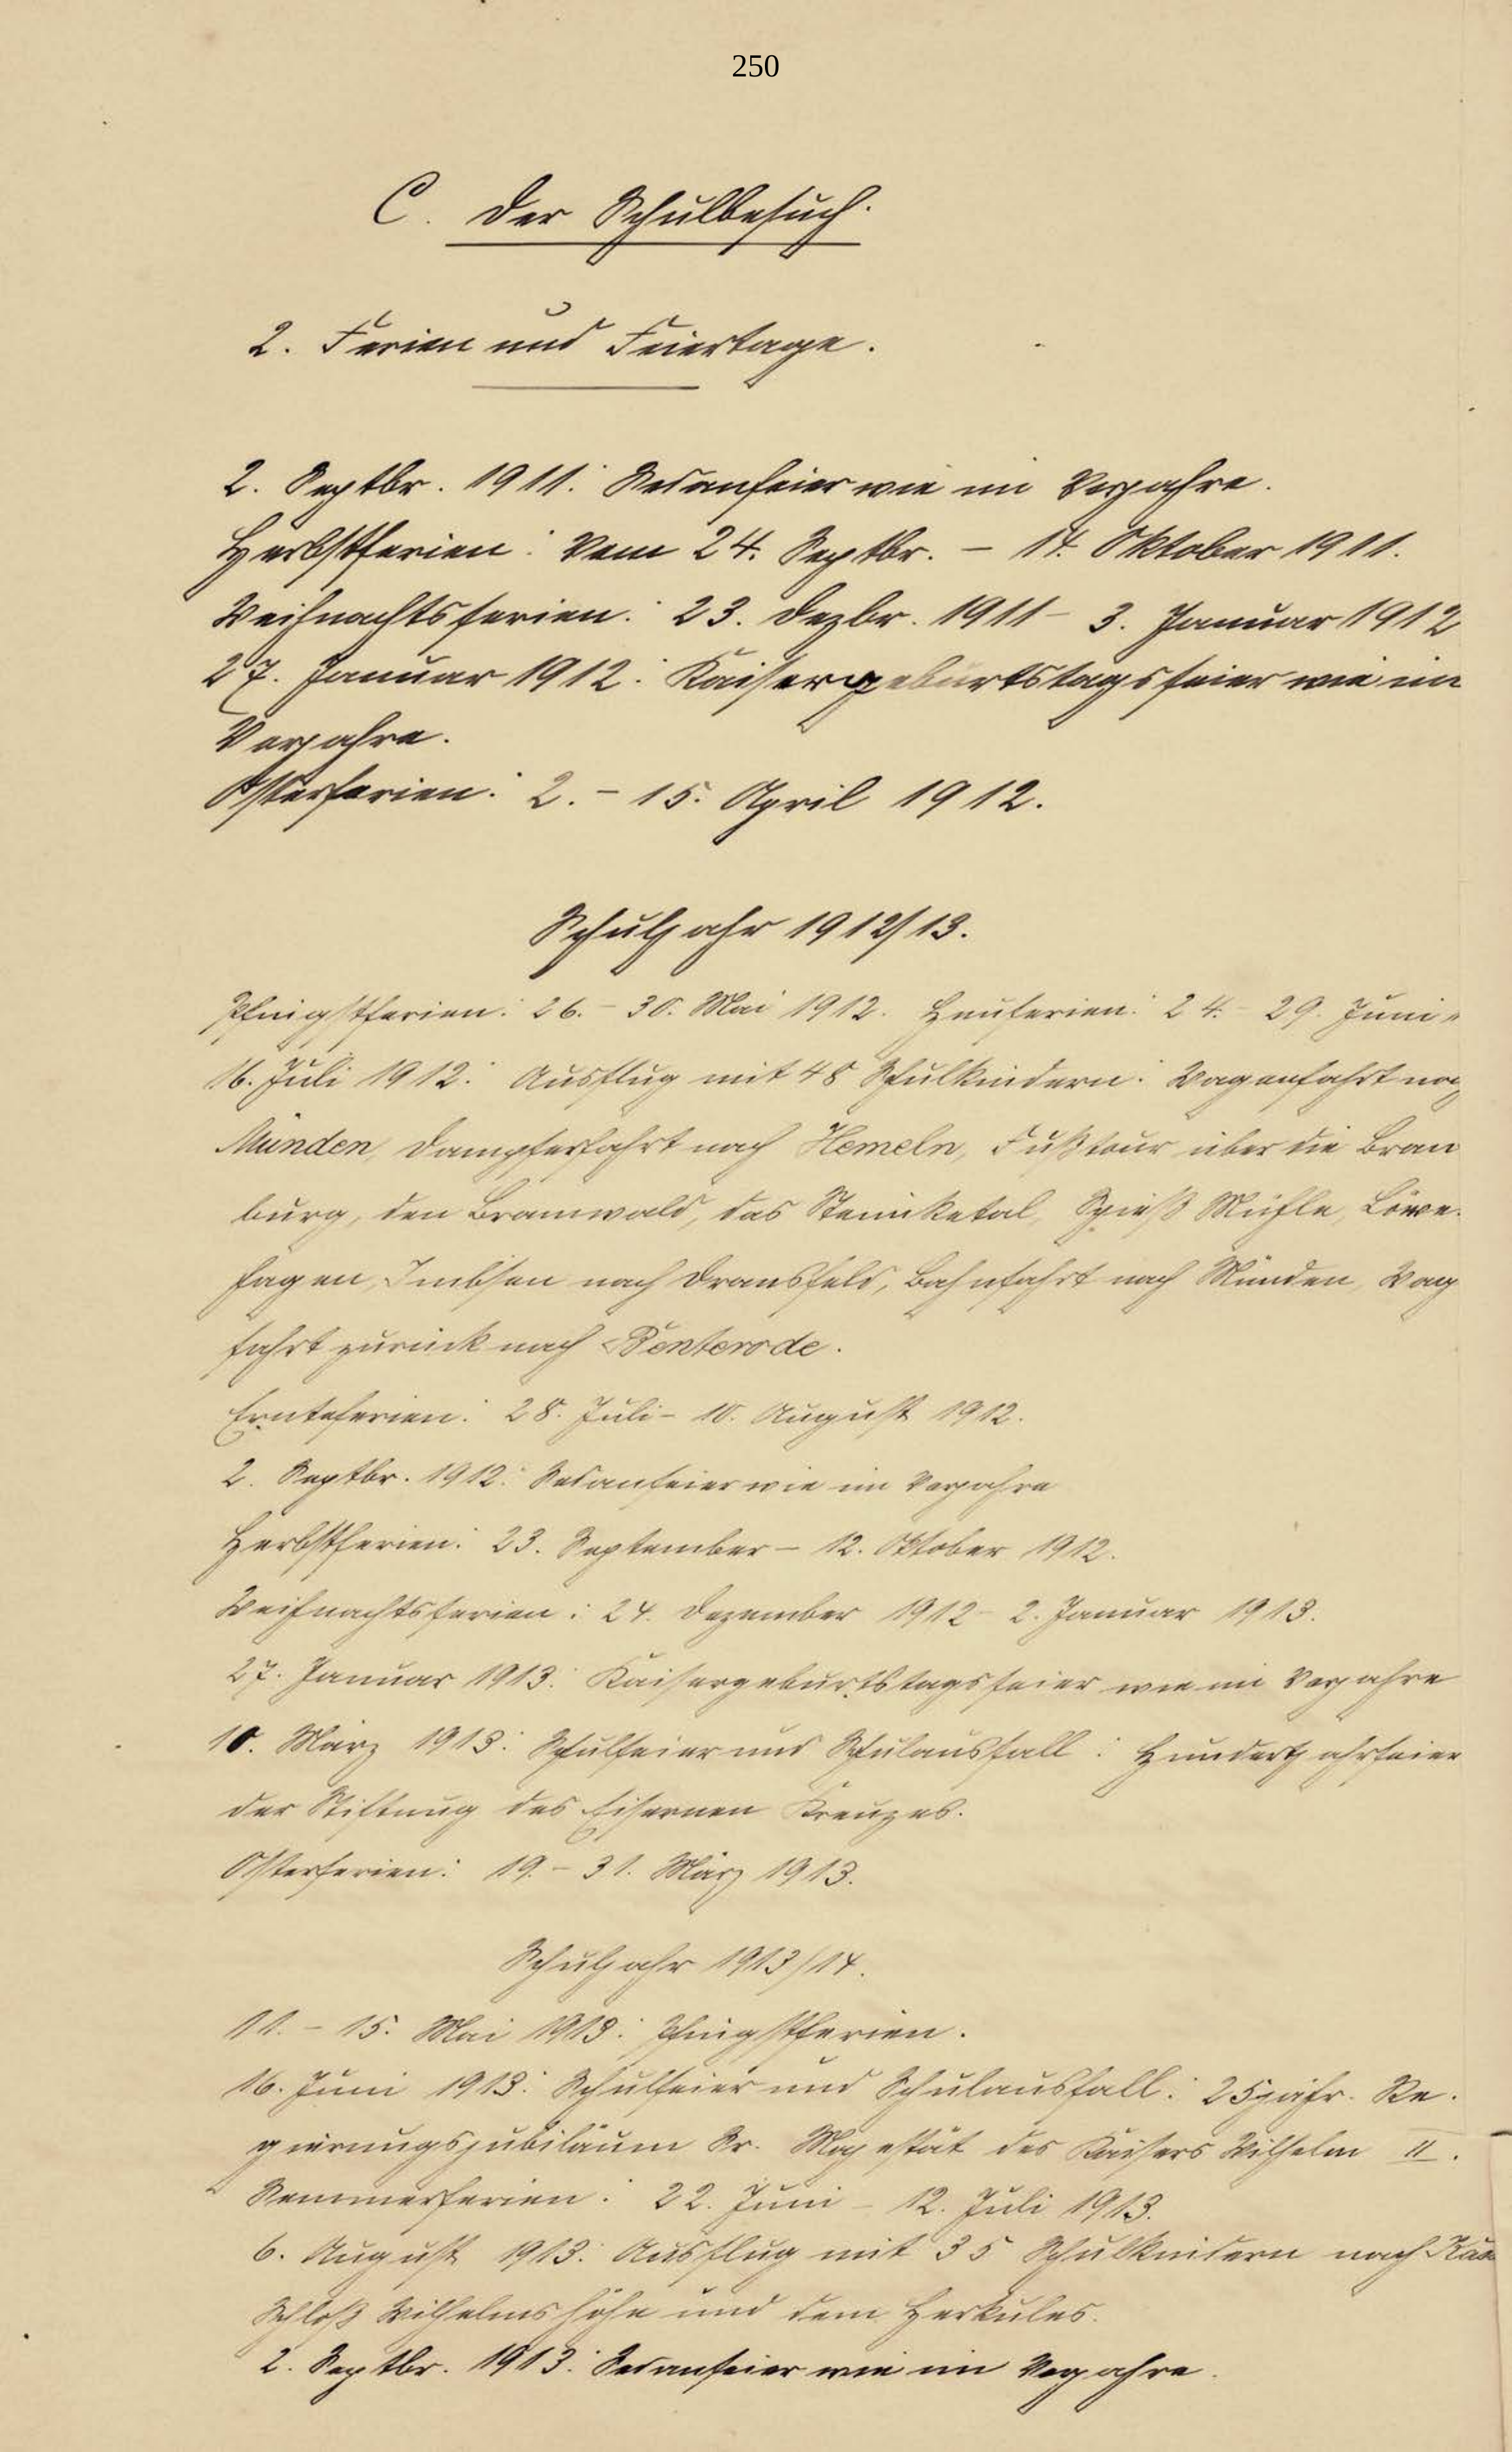 250
C. Der Schulbesuch.
2. Ferien und Feiertage.
2. Septbr. 1911: Sedanfeier wie im Vorjahre.
Herbstferien: Vom 24. Septbr. – 14. Oktober 1911.
Weihnachtsferien: 23. Dezbr. 1911 – 3. Januar 1912
27. Januar 1912: Kaisergeburtstagsfeier wie im
Vorjahre.
Osterferien: 2. – 15. April 1912.
Schuljahr 1912/13.
Pfingstferien: 26. – 30. Mai 1912. Heuferien: 24. – 29. Juni
16. Juli 1912: Ausflug mit 48 Schulkindern: Wagenfahrt nach
Münden, Dampferfahrt nach Hemeln, Fußtour über die Bram
burg, den Bramwald, das Steinketal, Spieß Mühle, Löwen
hagen, Imbsen nach Dransfeld, Bahnfahrt nach Münden, Wag
fahrt zurück nach Benterode.
Ernteferien: 28. Juli – 10. August 1912.
2. Septbr. 1912: Sedanfeier wie im Vorjahre
Herbstferien: 23. September – 12. Oktober 1912.
Weihnachtsferien: 24. Dezember 1912 – 2. Januar 1913.
27. Januar 1913: Kaisergeburtstagsfeier wie im Vorjahre
10. März 1913: Schulfeier und Schulausfall: Hundertjahrfeier
der Stiftung des Eisernen Kreuzes.
Osterferien: 19. – 31. März 1913.
Schuljahr 1913/14.
11. – 15. Mai 1913: Pfingstferien.
16. Juni 1913: Schulfeier und Schulausfall: 25jähr. Re-
gierungsjubiläum Sr. Majestät des Kaisers Wilhelm II.
Sommerferien: 22. Juni – 12. Juli 1913.
6. August 1913: Ausflug mit 35 Schulkindern nach
Schloß Wilhelmshöhe und dem Herkules.
2. Septbr. 1913: Sedanfeier wie im Vorjahre.